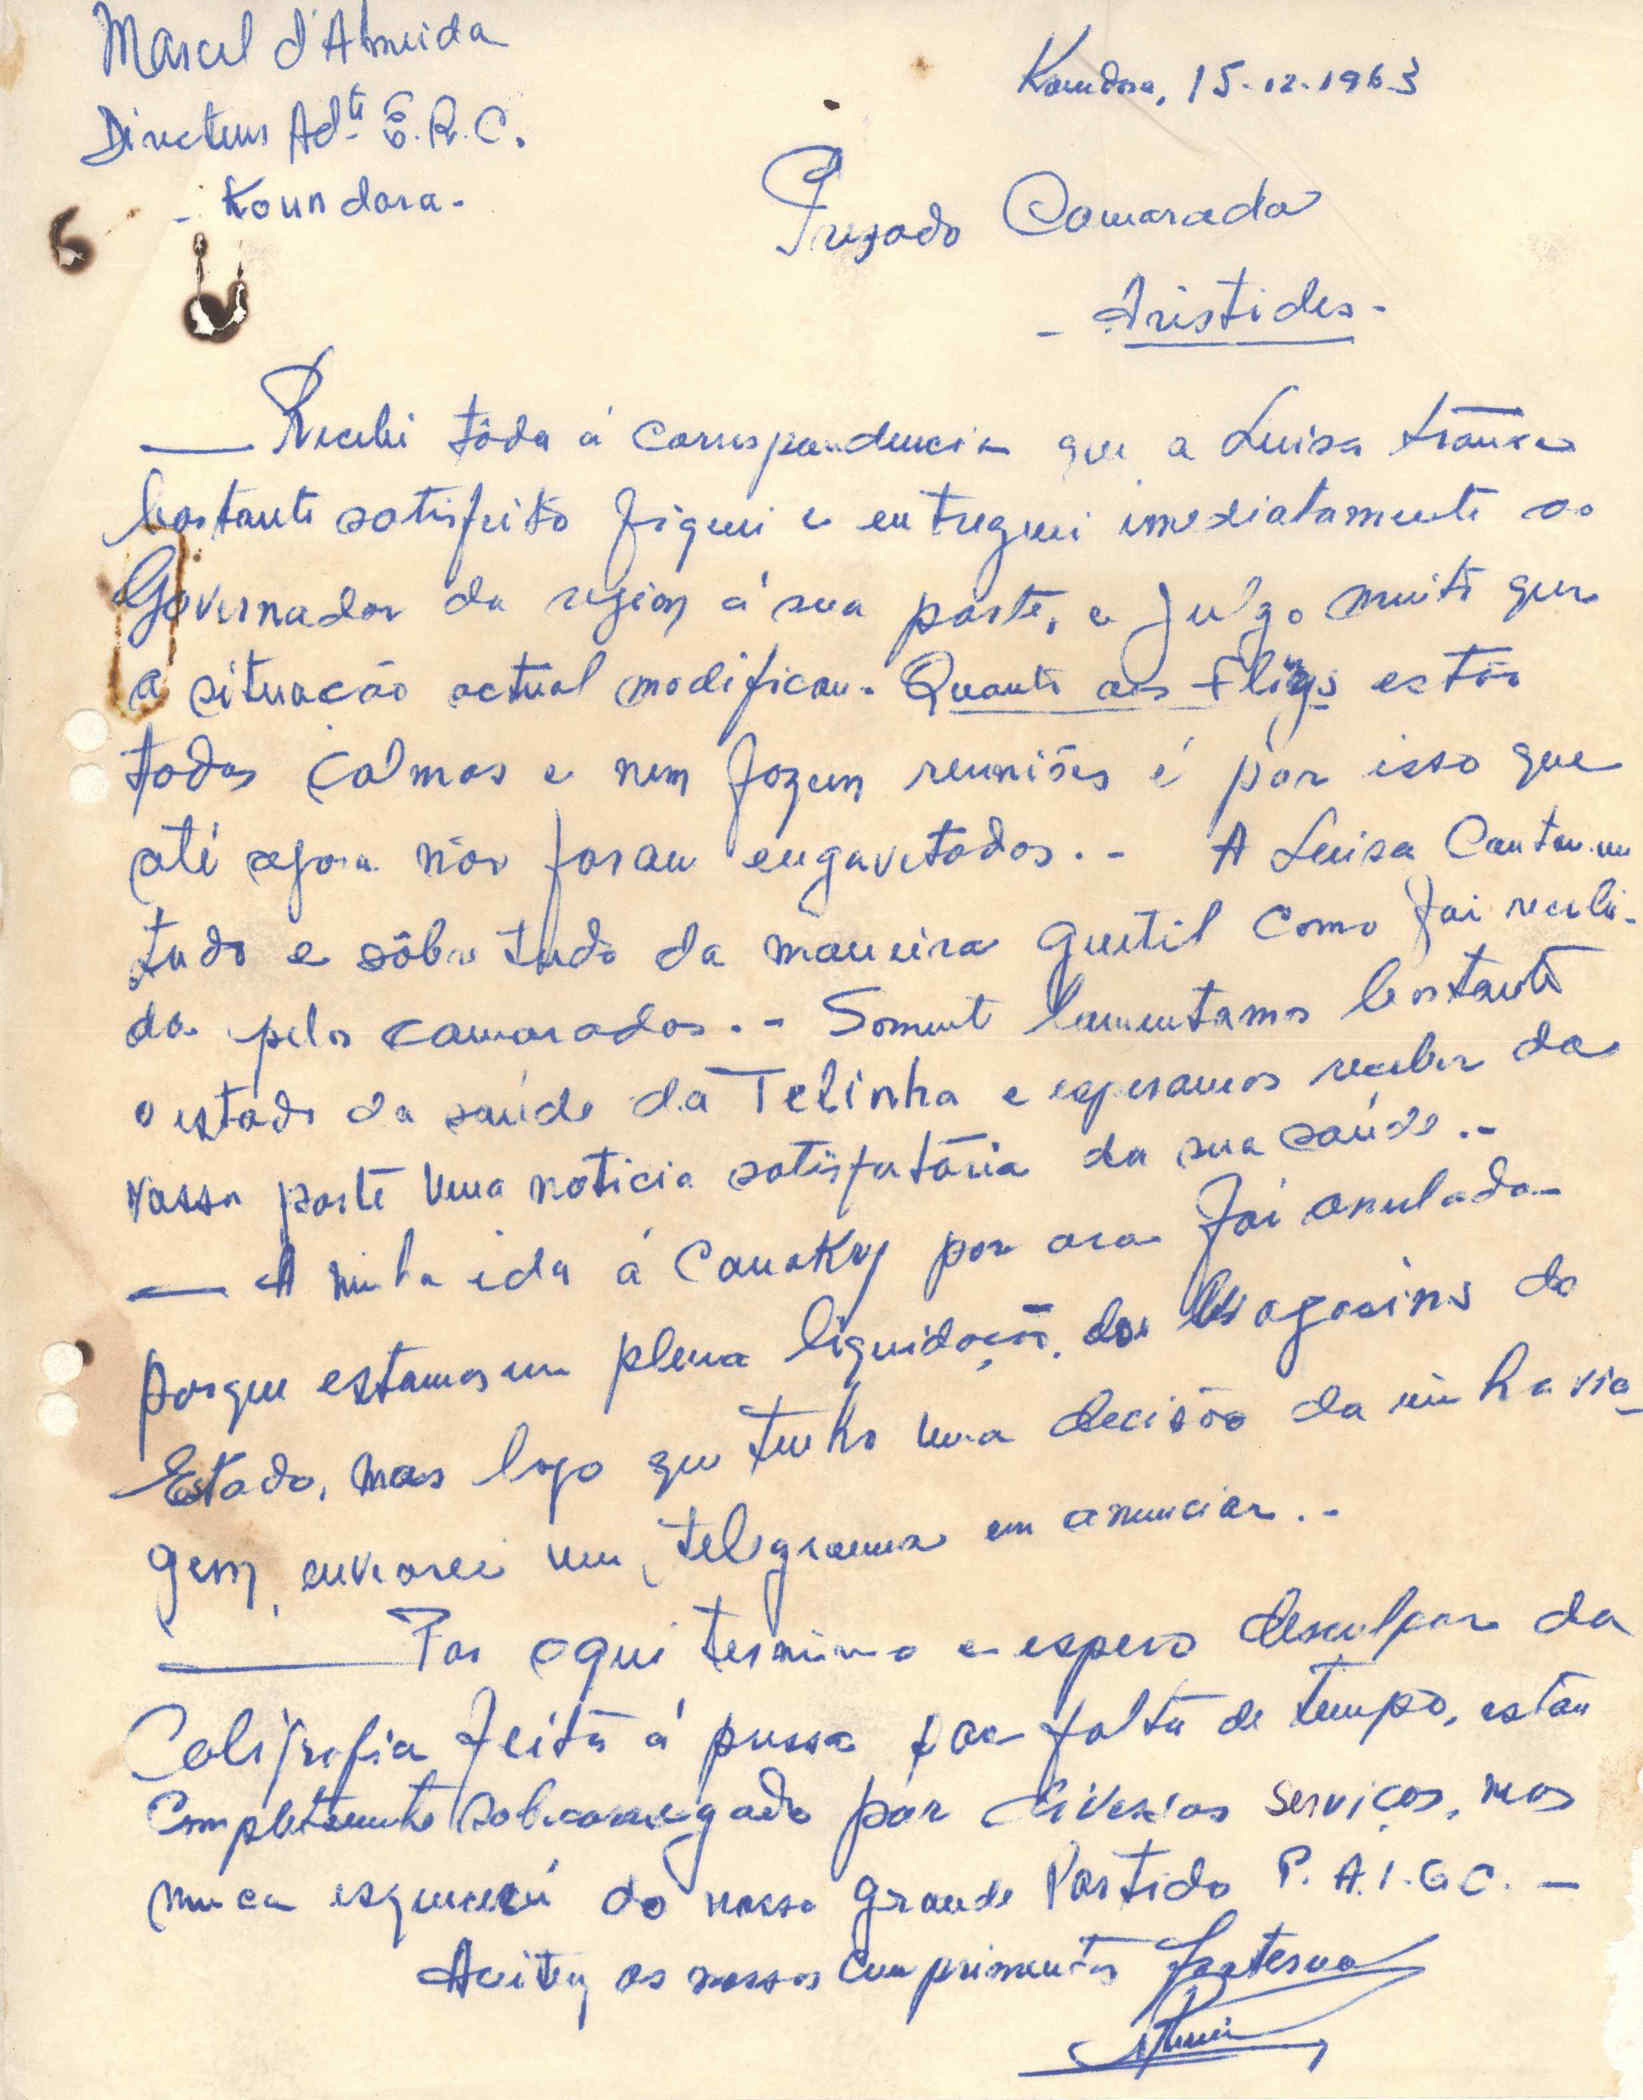 Marcel d'Almeida
Directeur Adt. E.R.C.
- Koundara -
Koundara, 15-12-1963
Prezado Camarada
- Aristides -
Recebi tôda á correspondencia que a Luisa trouxe
bastante satisfeito fiquei e entreguei imediatamente ao
Governador da region á sua parte, e julgo muito que
a situação actual modificou. Quanto aos Flings estão
todos calmos e nem fazem reuniões é por isso que
até agora não foram engavetados. - A Luisa Contou-me
tudo e sôbre tudo da maneira gentil como foi recebi-
da pelos camaradas. - Somente lamentamos bastante
o estado da saúde da Telinha e esperamos receber da
vossa parte uma noticia satisfatória da sua saúde. -
A minha ida á Conakry por ora foi anulada
porque estamos em plena liquidação dos Magasins do
Estado, mas logo que tenho uma decisão da minha via-
gem, enviarei um telegrama em anunciar. -
Por aqui termino e espero desculpar da
Caligrafia feita á pressa por falta de tempo, estou
completamente sobcarregado por diversos serviços, mas
nunca esquecerei do nosso grande Partido P.A.I.G.C. -
Aceitem os nossos cumprimentos fraternos